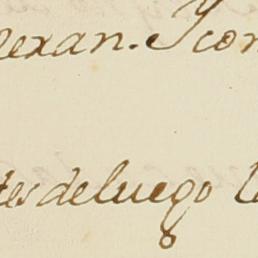 lexan. Y con
tes de luego l